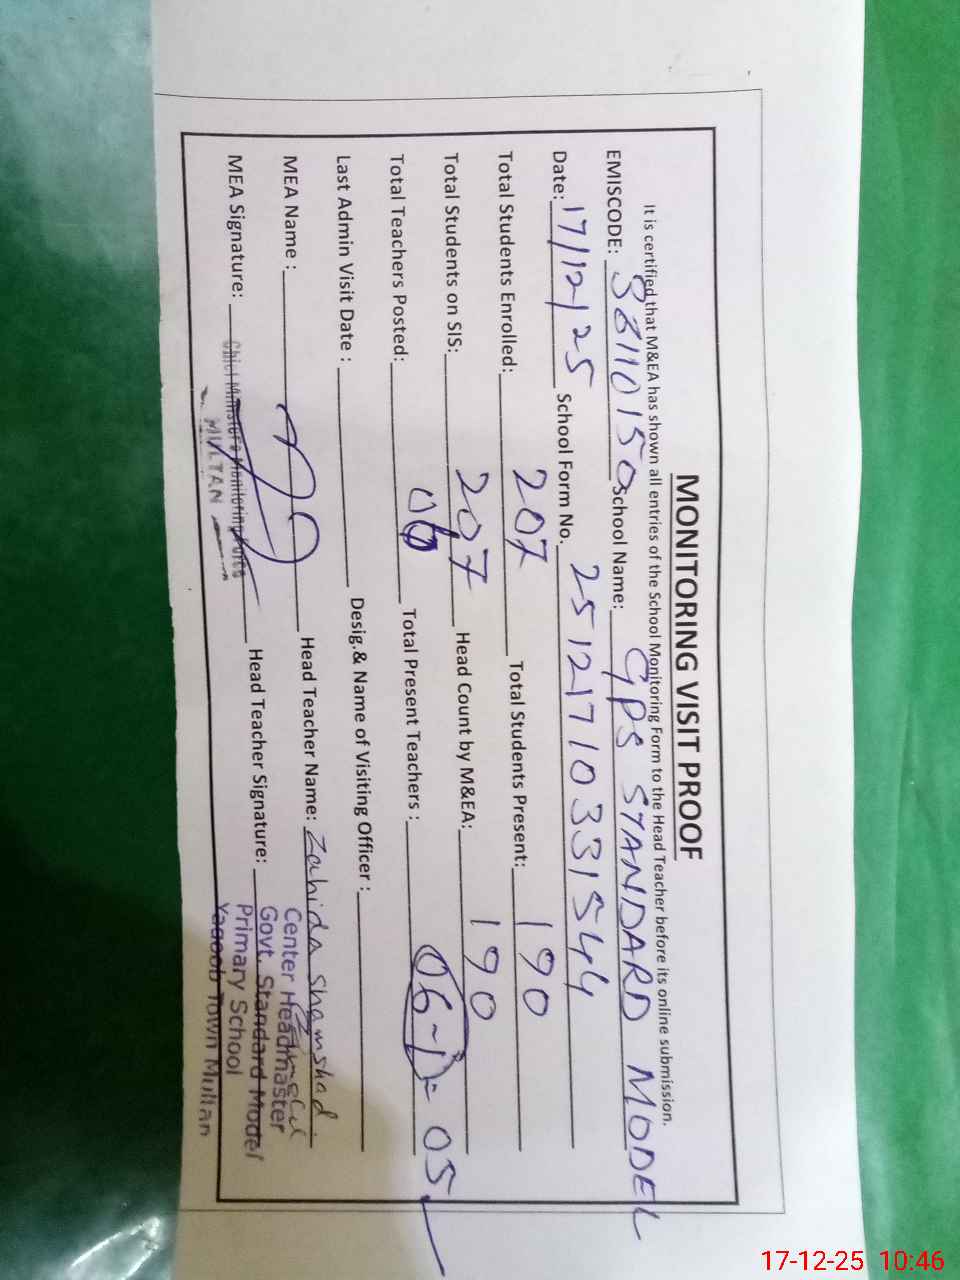 MONITORING VISIT PROOF
It is certified that M&EA has shown all entries of the School Monitoring Form to the Head Teacher before its online submission.
EMISCODE: 36110150 School Name: GPS STANDARD MODEL
Date: 17/12/25 School Form No. 25121710331544
Total Students Enrolled: 207 Total Students Present: 190
Total Students on SIS: 207 Head Count by M&EA: 190
Total Teachers Posted: 06 Total Present Teachers : 06-1= 05
Last Admin Visit Date : Desig.& Name of Visiting Officer :
MEA Name : Head Teacher Name: Zahida Shamshad
MEA Signature: Head Teacher Signature:
Chief Minister's Monitoring Force
MULTAN
Center Headmaster
Govt. Standard Model
Primary School
Yaqoob Town Multan
17-12-25 10:46